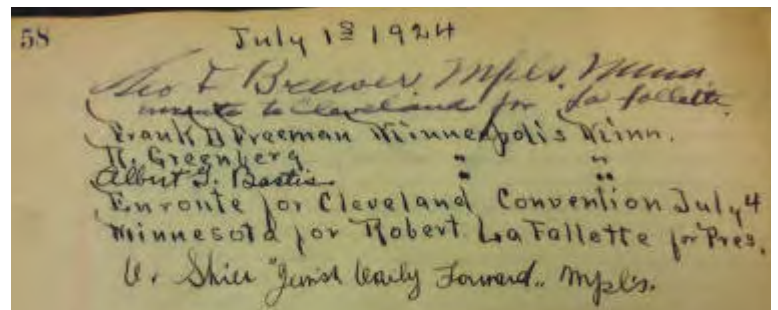 58
July 1st 1924
Geo T Brewer, Mpls. Minn.
enroute to Cleveland for La follette.
Frank D Freeman Minneapolis Minn.
R. Greenberg " "
Albert G. Bastis " "
Enroute for Cleveland Convention July 4
Minnesota for Robert LaFallette for Pres.
Shier "Jewish Daily Forward" Mpls.